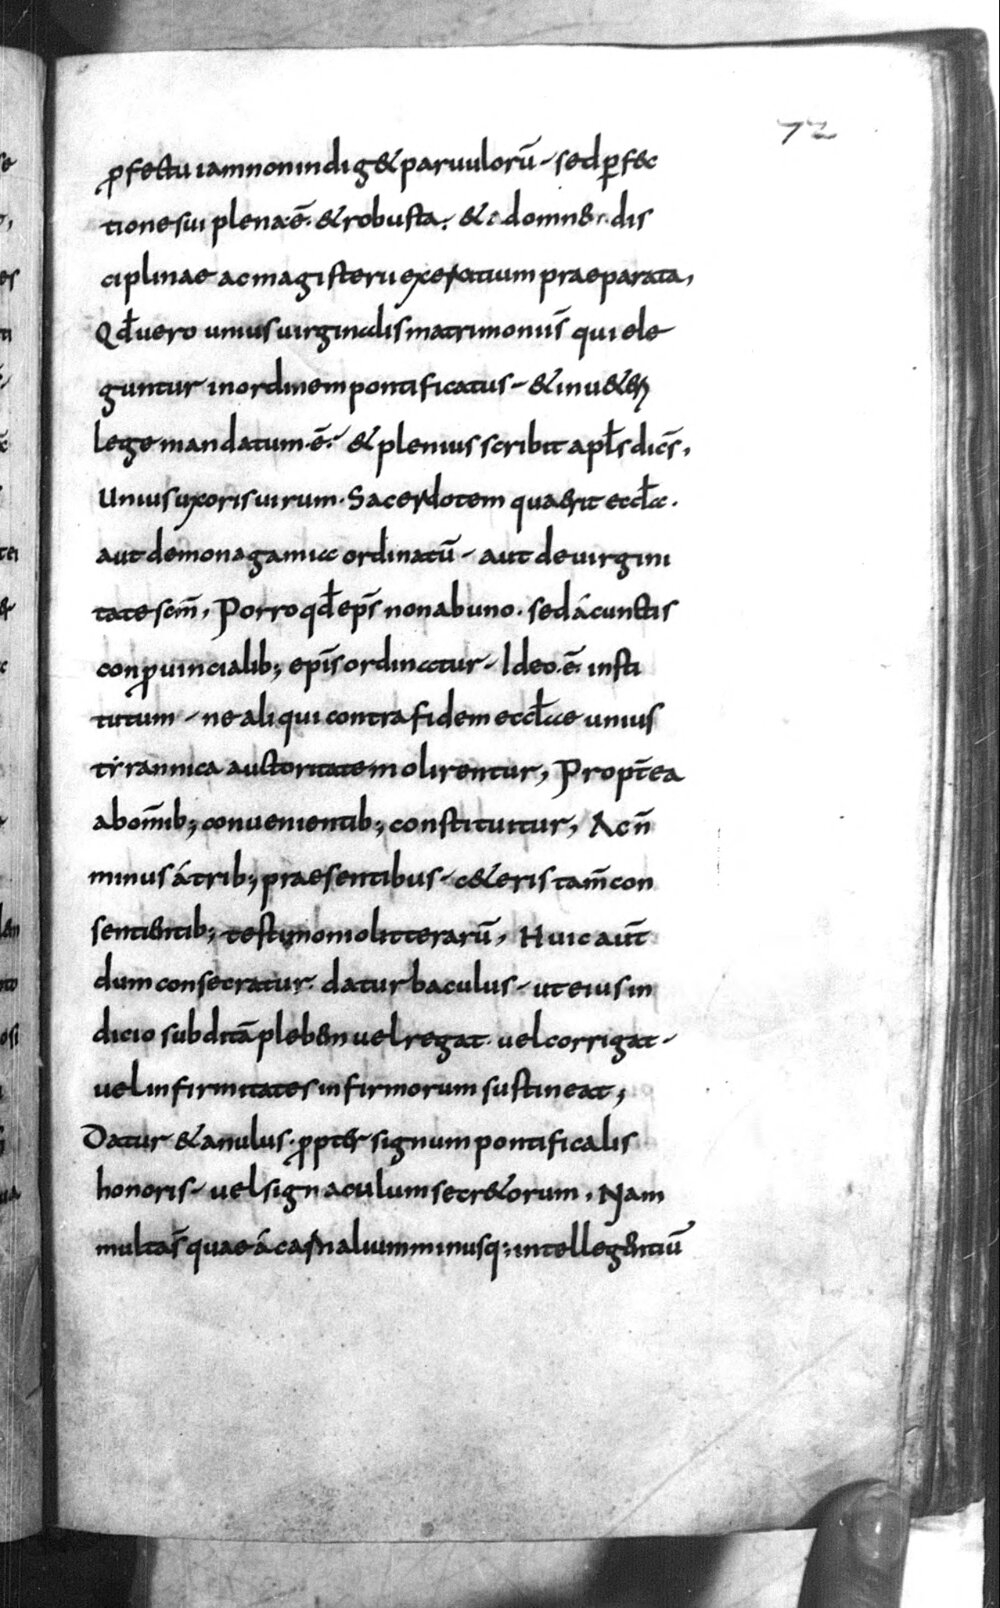 72
ꝓfectu iam non indig& paruulorū - sed ꝑfec
tione sui plena ē. & robusta. & ad omn& dis
ciplinae ac magisterii exercitium praeparata,
Qđ uero unius uirginalis matrimonii s̄ qui ele
guntur in ordinem pontificatus - & in u&eri
lege mandatum .ē. & plenius scribit apłs dic̄s,
Unius uxoris uirum. Sacerdotem quaerit eccła.
aut de monagamia ordinatū - aut de uirgini
tate sc̄m, Porro qđ ep̄s non ab uno. sed á cunctis
conꝓuincialib; ep̄is ordinatur - Ideo .ē. insti
tutum - ne aliqui contra fidem eccłae unius
tẏrannica auctoritate molirentur, Propt̄ea
ab om̄ib; conuenientib; constituitur, Ac n̄
minus á trib; praesentibus - c&eris tam̄ con
sentientib; testimonio litterarū, Huic aut̄
dum consecratur. datur baculus - ut eius in
dicio subditā plebem uel regat. uel corrigat -
uel infirmitates infirmorum sustineat,
Datur & anulus. ꝓpter signum pontificalis
honoris - uel signaculum secr&orum, Nam
multa s̄ quae á carnalium minusq; intellegentiū